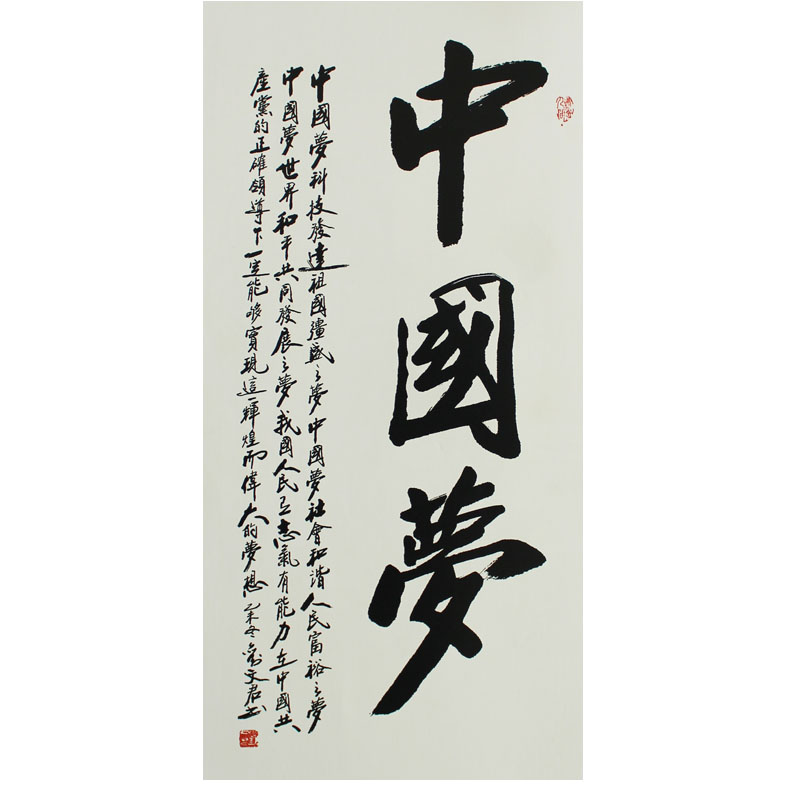 中國夢
中國夢科技發達祖國彊盛之夢中國夢社會和諧人民富裕之夢
中國夢世界和平共同發展之夢我國人民有志氣有能力在中國共
產黨的正確領導下一定能够實現這一輝煌而偉大的夢想
文君书